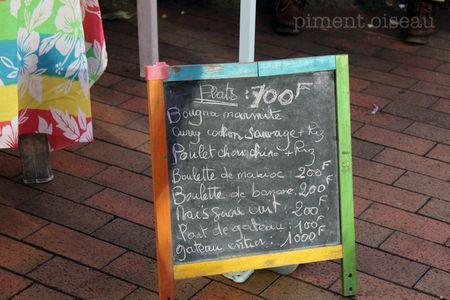 piment oiseau
Plats : 700F
Bougna marmite
Curry cochon sauvage + Riz
Poulet chow chino + Riz
Boulette de manioc 200F
Boulette de banane 200F
Maïs sucré cuit : 200F
Part de gateau : 100F
Gateau entier : 1000F